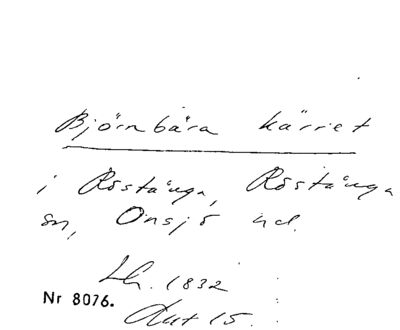 Björnbära kärret
i Röstånga, Röstånga
sn, Onsjö hd.
Lh. 1832
Nr 8076.
Akt 15.